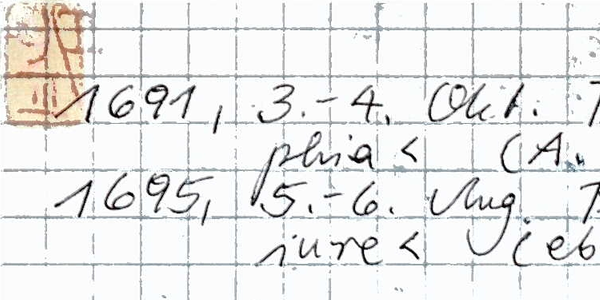 1691, 3.-4. Okt.
phia < (A.
1695, 5.-6. Aug.
iure < (eb